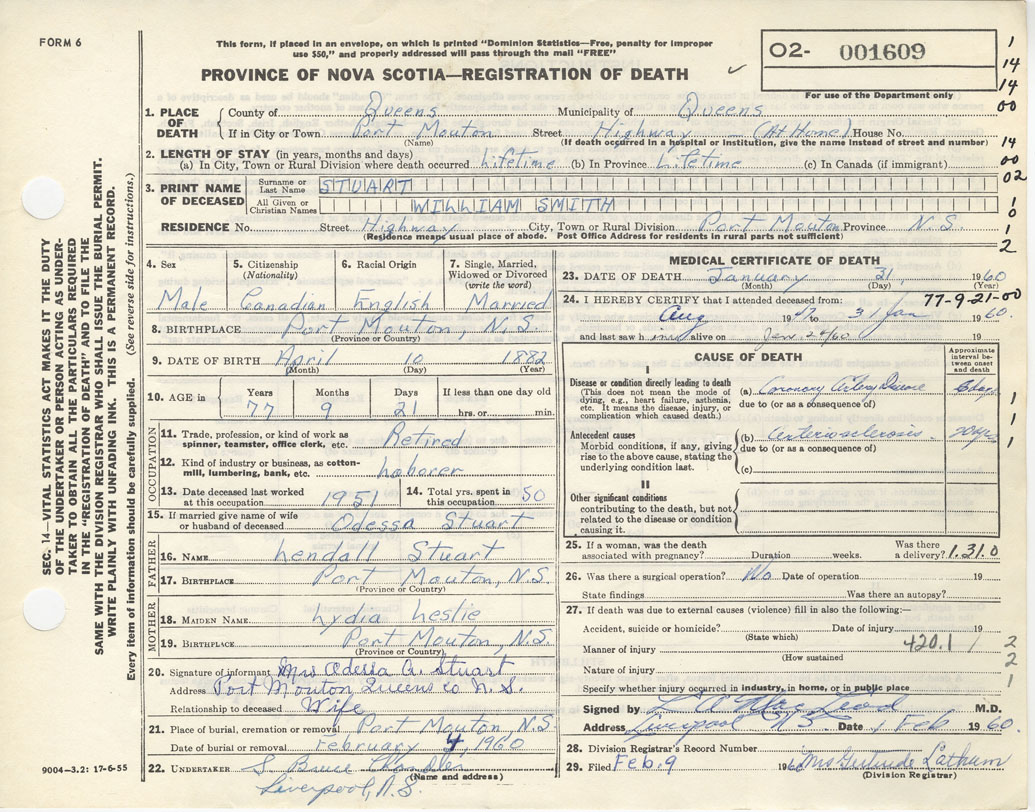 FORM 6
This form, if placed in an envelope, on which is printed "Dominion Statistics—Free, penalty for improper
use $50," and properly addressed will pass through the mail "FREE"
PROVINCE OF NOVA SCOTIA—REGISTRATION OF DEATH
02- 001609
For use of the Department only
1
14
14
00
14
00
02
1
0
1
2
SEC. 14—VITAL STATISTICS ACT MAKES IT THE DUTY
OF THE UNDERTAKER OR PERSON ACTING AS UNDER-
TAKER TO OBTAIN ALL THE PARTICULARS REQUIRED
IN THE "REGISTRATION OF DEATH" AND TO FILE THE
SAME WITH THE DIVISION REGISTRAR WHO SHALL ISSUE THE BURIAL PERMIT.
WRITE PLAINLY WITH UNFADING INK. THIS IS A PERMANENT RECORD.
Every item of information should be carefully supplied. (See reverse side for instructions.)
1. PLACE OF DEATH County of Queens Municipality of Queens
If in City or Town Port Mouton Street Highway (At Home) House No.
(Name) (If death occurred in a hospital or institution, give the name instead of street and number)
2. LENGTH OF STAY (in years, months and days)
(a) In City, Town or Rural Division where death occurred Lifetime (b) In Province Lifetime (c) In Canada (if immigrant)
3. PRINT NAME OF DECEASED Surname or Last Name STUART
All Given or Christian Names WILLIAM SMITH
RESIDENCE No. Street Highway City, Town or Rural Division Port Mouton Province N.S.
(Residence means usual place of abode. Post Office Address for residents in rural parts not sufficient)
4. Sex Male
5. Citizenship (Nationality) Canadian
6. Racial Origin English
7. Single, Married, Widowed or Divorced (write the word) Married
8. BIRTHPLACE Port Mouton, N.S.
(Province or Country)
9. DATE OF BIRTH April 10 1882
(Month) (Day) (Year)
10. AGE in Years Months Days If less than one day old
77 9 21 hrs. or min.
OCCUPATION
11. Trade, profession, or kind of work as spinner, teamster, office clerk, etc. Retired
12. Kind of industry or business, as cotton-mill, lumbering, bank, etc. Laborer
13. Date deceased last worked at this occupation 1951 14. Total yrs. spent in this occupation 50
15. If married give name of wife or husband of deceased Odessa Stuart
FATHER
16. NAME Lendall Stuart
17. BIRTHPLACE Port Mouton, N.S.
(Province or Country)
MOTHER
18. MAIDEN NAME Lydia Leslie
19. BIRTHPLACE Port Mouton, N.S.
(Province or Country)
20. Signature of informant Mrs Odessa A. Stuart
Address Port Mouton Queens co N.S.
Relationship to deceased Wife
21. Place of burial, cremation or removal Port Mouton N.S
Date of burial or removal February 4, 1960
22. UNDERTAKER S Bruce Chandler
(Name and address)
Liverpool, N.S.
9004—3.2: 17-6-55
MEDICAL CERTIFICATE OF DEATH
23. DATE OF DEATH January 31, 1960
(Month) (Day) (Year)
24. I HEREBY CERTIFY that I attended deceased from: 77-9-21-00
Aug 1947 to 31 Jan 1960.
and last saw him alive on Jan. 24/60 19
CAUSE OF DEATH
Approximate interval between onset and death
I
Disease or condition directly leading to death
(This does not mean the mode of dying, e.g., heart failure, asthenia, etc. It means the disease, injury, or complication which caused death.)
(a) Coronary Artery Disease 6 days
due to (or as a consequence of)
Antecedent causes
Morbid conditions, if any, giving rise to the above cause, stating the underlying condition last.
(b) Arteriosclerosis
due to (or as a consequence of)
(c)
II
Other significant conditions
contributing to the death, but not related to the disease or condition causing it.
1
1
1
25. If a woman, was the death associated with pregnancy? Duration weeks. Was there a delivery? 1.31.0
26. Was there a surgical operation? No Date of operation 19
State findings Was there an autopsy?
27. If death was due to external causes (violence) fill in also the following:—
Accident, suicide or homicide? Date of injury 19
(State which)
Manner of injury 420.1
(How sustained
2
2
1
Nature of injury
Specify whether injury occurred in industry, in home, or in public place
Signed by MacLeod M.D.
Address Liverpool NS. Date 1 Feb 1960.
28. Division Registrar's Record Number
29. Filed Feb. 9 1960 Mrs Gertrude Lathum
(Division Registrar)